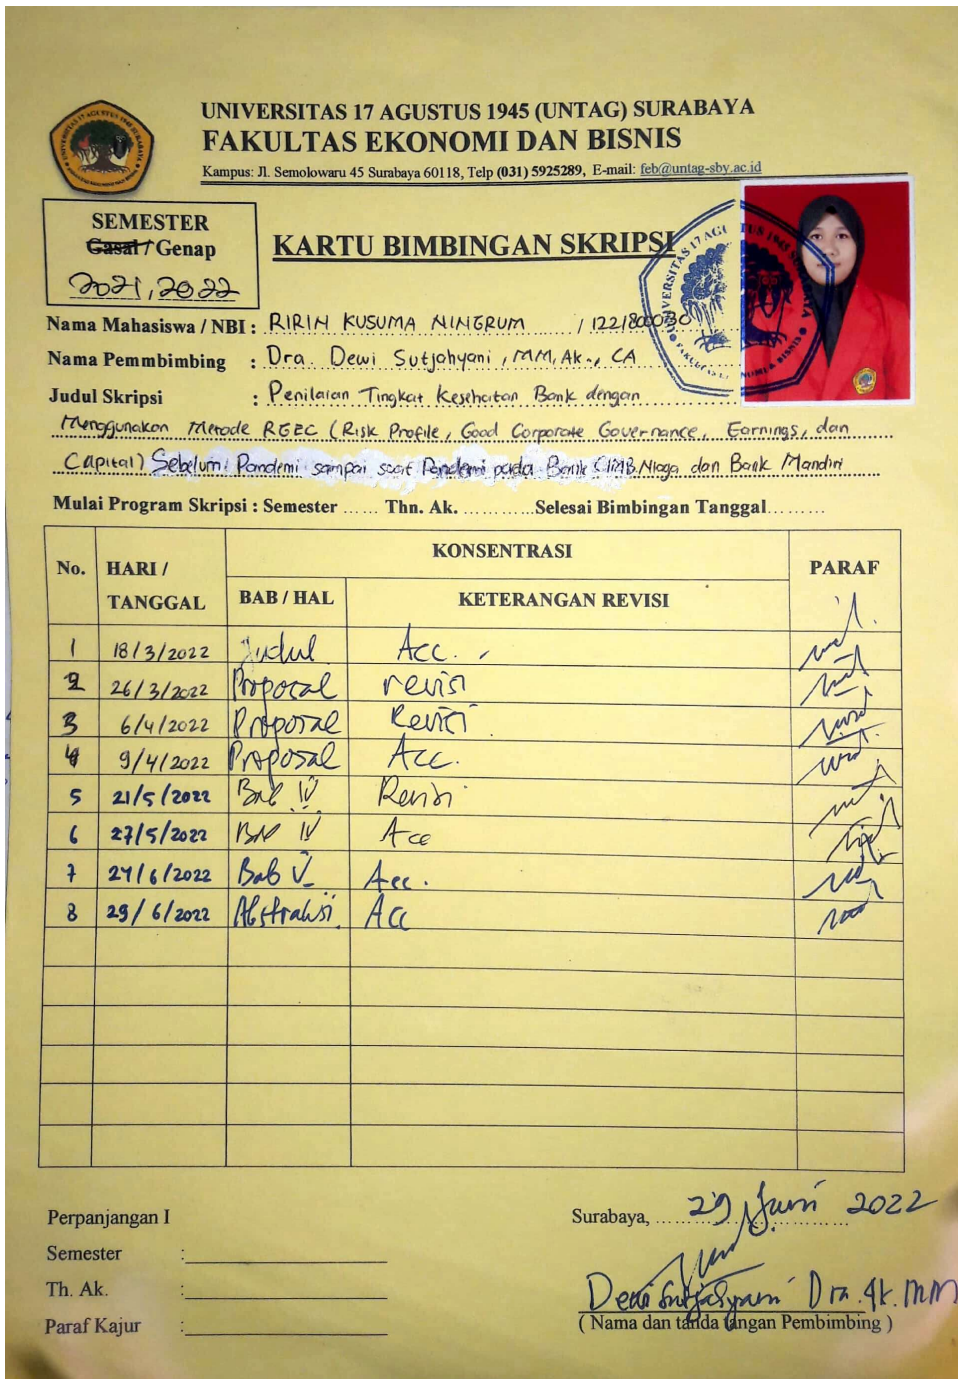 UNIVERSITAS 17 AGUSTUS 1945 (UNTAG) SURABAYA
FAKULTAS EKONOMI DAN BISNIS
Kampus: Jl. Semolowaru 45 Surabaya 60118, Telp (031) 5925289, E-mail: feb@untag-sby.ac.id
SEMESTER
Gasal / Genap
2021, 2022
KARTU BIMBINGAN SKRIPSI
Nama Mahasiswa / NBI : RIRIN KUSUMA NINGRUM / 1221800030
Nama Pemmbimbing : Dra. Dewi Sutjahyani, MM, Ak., CA
Judul Skripsi : Penilaian Tingkat Kesehatan Bank dengan
Menggunakan Metode RGEC (Risk Profile, Good Corporate Governance, Earnings, dan
Capital) Sebelum Pandemi sampai saat Pandemi pada Bank CIMB Niaga dan Bank Mandiri
Mulai Program Skripsi : Semester ...... Thn. Ak. ............Selesai Bimbingan Tanggal.........
No. HARI / TANGGAL KONSENTRASI PARAF
BAB / HAL KETERANGAN REVISI
1 18/3/2022 Judul Acc.
2 26/3/2022 Proposal revisi
3 6/4/2022 Proposal Revisi
4 9/4/2022 Proposal Acc.
5 21/5/2022 Bab IV Revisi
6 27/5/2022 Bab IV Acc
7 24/6/2022 Bab V Acc.
8 29/6/2022 Abstraksi. Acc
Perpanjangan I
Semester :
Th. Ak. :
Paraf Kajur :
Surabaya, 29 Juni 2022
Dewi Sutjahyani Dra. Ak. MM
( Nama dan tanda tangan Pembimbing )